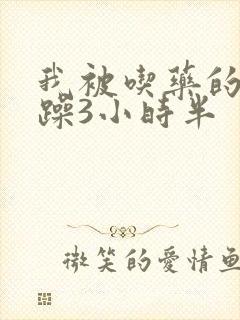 我被喫藥的
躁3小時半
微笑的愛情魚